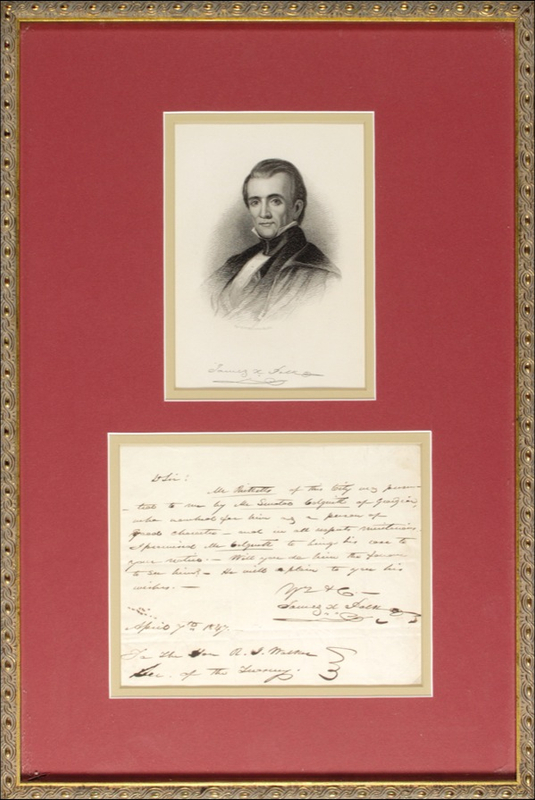 James K. Polk
D Sir:
Mr of this City was presen-
-ted to me by Mr Senator Colquitt of Georgia,
who vouched for him as a person of
good character - and in all respects meritorious
I promised Mr Colquitt to bring his case to
your notice. - Will you do him the favour
to see him? - He will explain to you his
wishes. -
Yr &C. -
James K. Polk
April 7th 1847.
To the Hon R. J. Walker
Sec. of the Treasury.